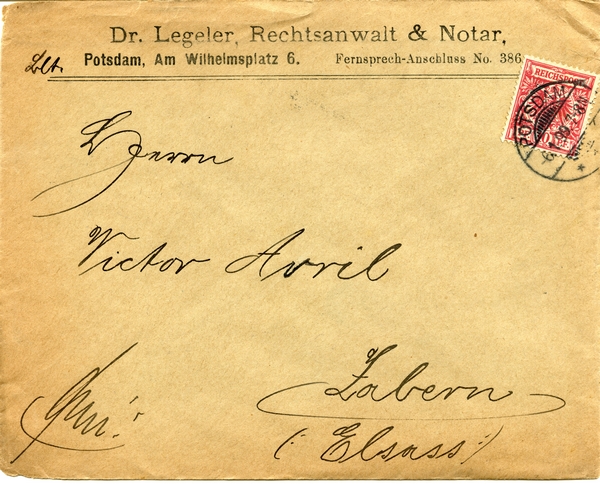 Dr. Legeler, Rechtsanwalt & Notar,
Potsdam, Am Wilhelmsplatz 6. Fernsprech-Anschluss No. 386.
REICHSPOST
POTSDAM
Herrn
Victor Avril
Zabern
(: Elsass :)